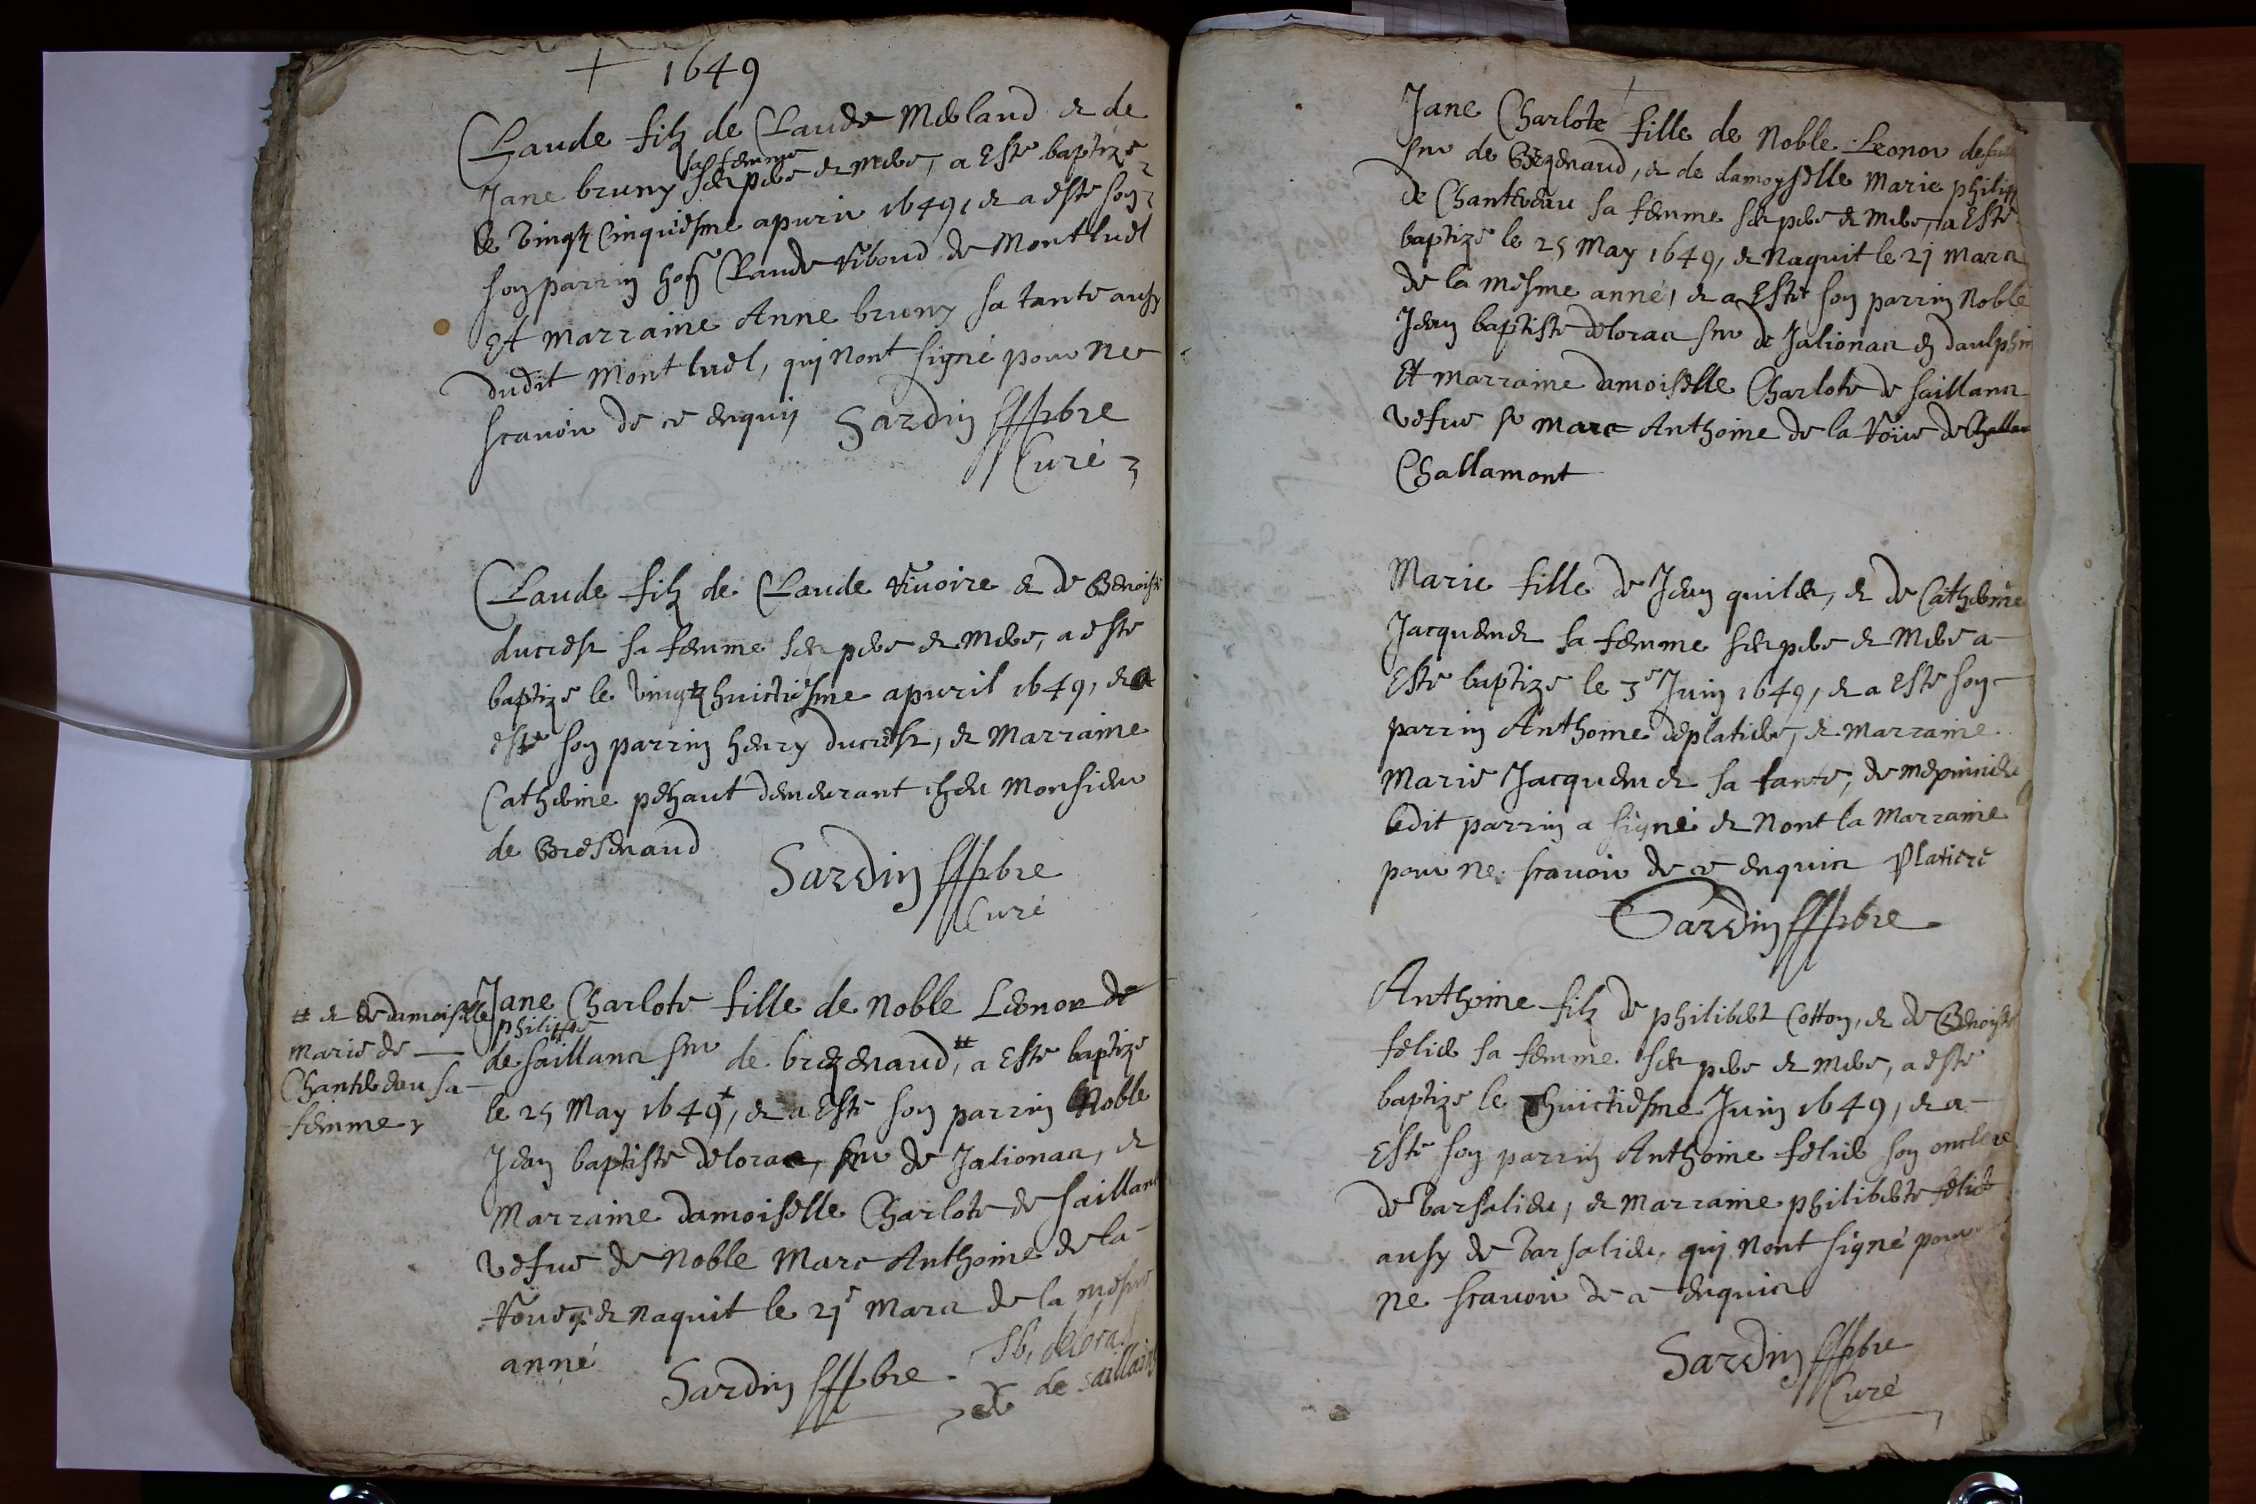 1649
Claude filz de Claude Meeland et de
sa femme
Jane bruny ses pere et mere, a este baptize
le vingtz cinquiesme apuril 1649, et a este son
son parrin hon Claude Tiboud de Montluel
Et marraine Anne bruny sa tante ausy
dudit Montluel, quj nont signé pour ne
scauoir de ce enquis Sardin pbre
Curé
Claude filz de Claude Viuoire et de Benoiste
ducrest sa femme ses pere et mere, a este
baptize le vingtz huictiesme apuril 1649, et a
este son parrin henry ducrest, et Marraine
Catherine pehaut demeurant ches Monsieur
de Bresenaud
Sardin pbre
Curé
Jane Charlote fille de Noble Leonor de
# et de damoiselle
Marie de
Chantereau sa
femme
philippe
de saillans sieur de brezenaud,# a Este baptize
le 25 May 1649, et a Este son parrin Noble
Jean baptiste deloras, sieur de Jalionas, et
Marraine damoiselle Charlote de saillans
vefue de Noble Marc Anthoine de la
et naquit le 21e Mars de la mesme
anné
Sardin pbre
de saillans
Jane Charlote fille de Noble Leonor de
sieur de Brezenaud, et de damoyselle Marie philippe
de Chantereau sa femme ses pere et mere, a Esté
baptize le 25 May 1649, et Naquit le 21 Mars
de la mesme anné, et a Este son parrin Noble
Jean baptiste deloras sieur de Jalionas en daulphin
Et marraine damoiselle Charlote de saillans
vefue sr Marc Anthoine de la
Challamont
Marie fille de Jean quiler, et de Catherine
Jacquemer sa femme ses pere et Mere a
Este baptize le 3e Juin 1649, et a Este son
parrin Anthoine deplatiere, et Marraine
Marie Jacquemer sa tante, de
ledit parrin a signé et Nont la Marraine
pour ne scauoir de ce enquis Platiere
Sardin pbre
Anthoine filz de philibert Cotton, et de Benoiste
felice sa femme ses pere et mere, a este
baptize le huictiesme Juin 1649, et a
Este son parrin Anthoine felice son oncle
de Varsalieu, et Marraine philiberte
ausy de Varsalieu, quj Nont signé pour
ne scauoir de ce enquis
Sardin pbre
Curé